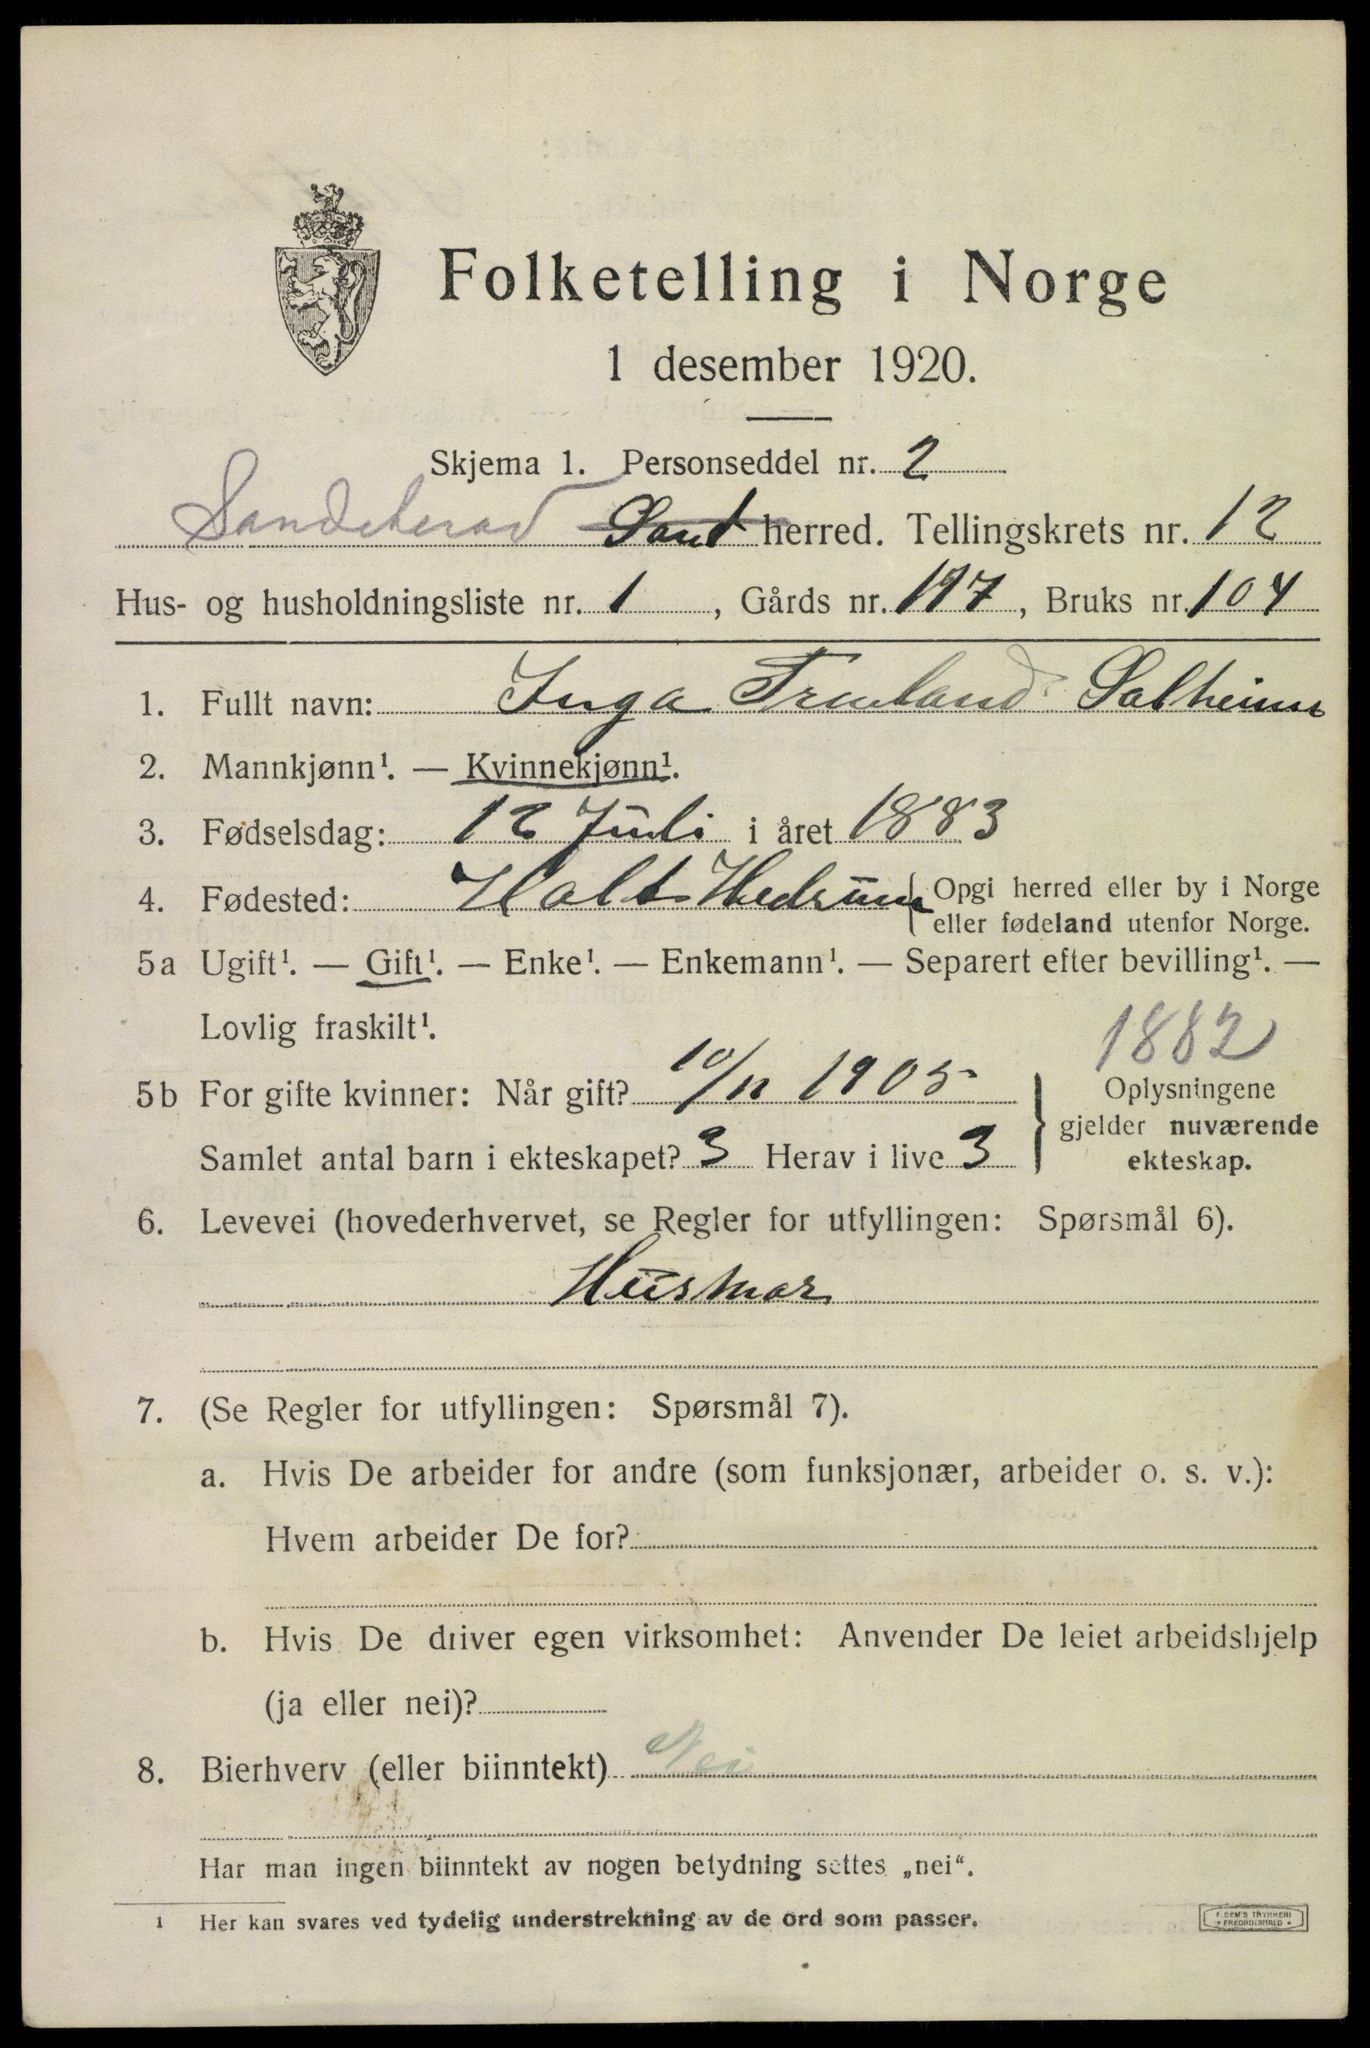 Folketelling i Norge
1 desember 1920.
Skjema 1. Personseddel nr. 2
Sandeherad Sand herred. Tellingskrets nr. 12
Hus- og husholdningsliste nr. 1, Gårds nr. 197, Bruks nr. 104
1. Fullt navn: Inga Solheim
2. Mannkjønn¹. — Kvinnekjønn¹.
3. Fødselsdag: 12 Juli i året 1883
4. Fødested: Holt Hedrum { Opgi herred eller by i Norge
eller fødeland utenfor Norge.
5a Ugift¹. — Gift¹. — Enke¹. — Enkemann¹. — Separert efter bevilling¹. —
Lovlig fraskilt¹.
1882
5b For gifte kvinner: Når gift? 10/11 1905
Samlet antal barn i ekteskapet? 3 Herav i live 3
Oplysningene
gjelder nuværende
ekteskap.
6. Levevei (hovederhvervet, se Regler for utfyllingen: Spørsmål 6).
Husmor
7. (Se Regler for utfyllingen: Spørsmål 7).
a. Hvis De arbeider for andre (som funksjonær, arbeider o. s. v.):
Hvem arbeider De for?
b. Hvis De driver egen virksomhet: Anvender De leiet arbeidshjelp
(ja eller nei)?
8. Bierhverv (eller biinntekt) Nei
Har man ingen biinntekt av nogen betydning settes „nei“.
¹ Her kan svares ved tydelig understrekning av de ord som passer.
F. SEM'S TRYKKERI
FREDRIKSHALD